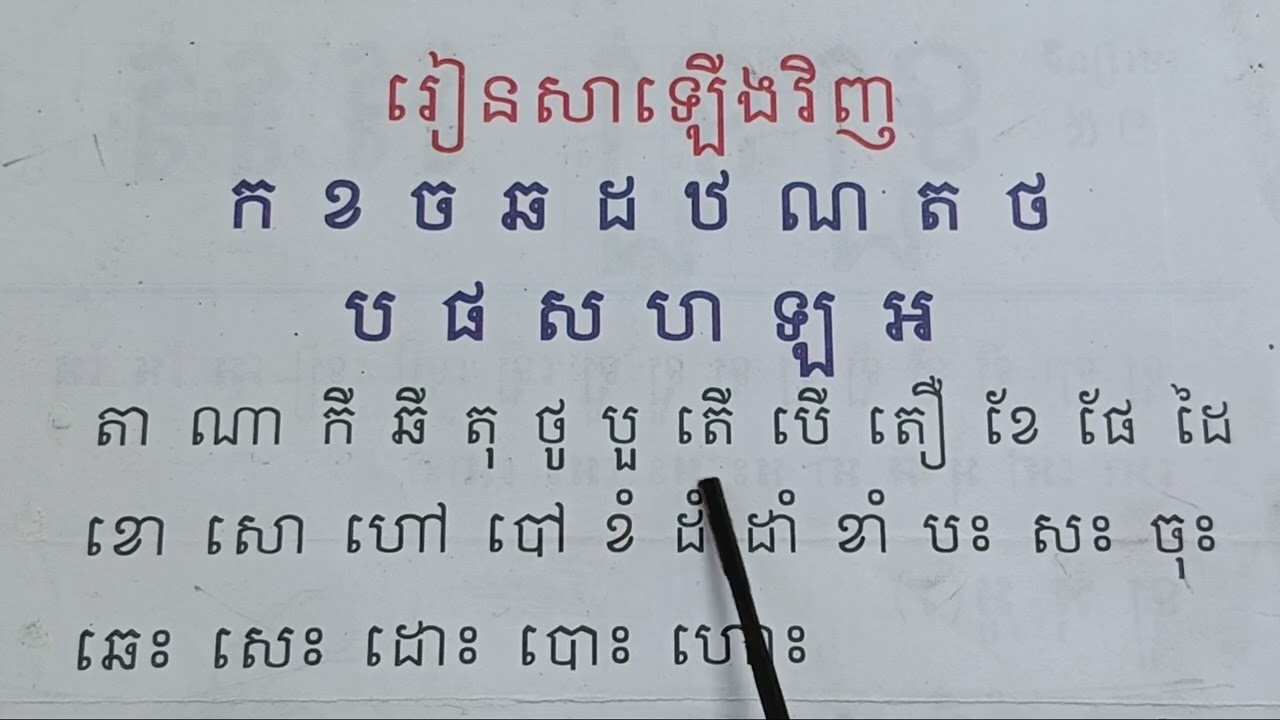 រៀនសាឡើងវិញ
ក ខ ច ឆ ដ ឋ ណ ត ថ
ប ផ ស ហ ឡ អ
តា ណា កី ឆី តុ ថូ បួ តើ បើ តឿ ខែ ផែ ដៃ
ខោ សោ ហៅ បៅ ខំ ដំ ដាំ ខាំ បះ សះ ចុះ
ឆេះ សេះ ដោះ បោះ ហោះ